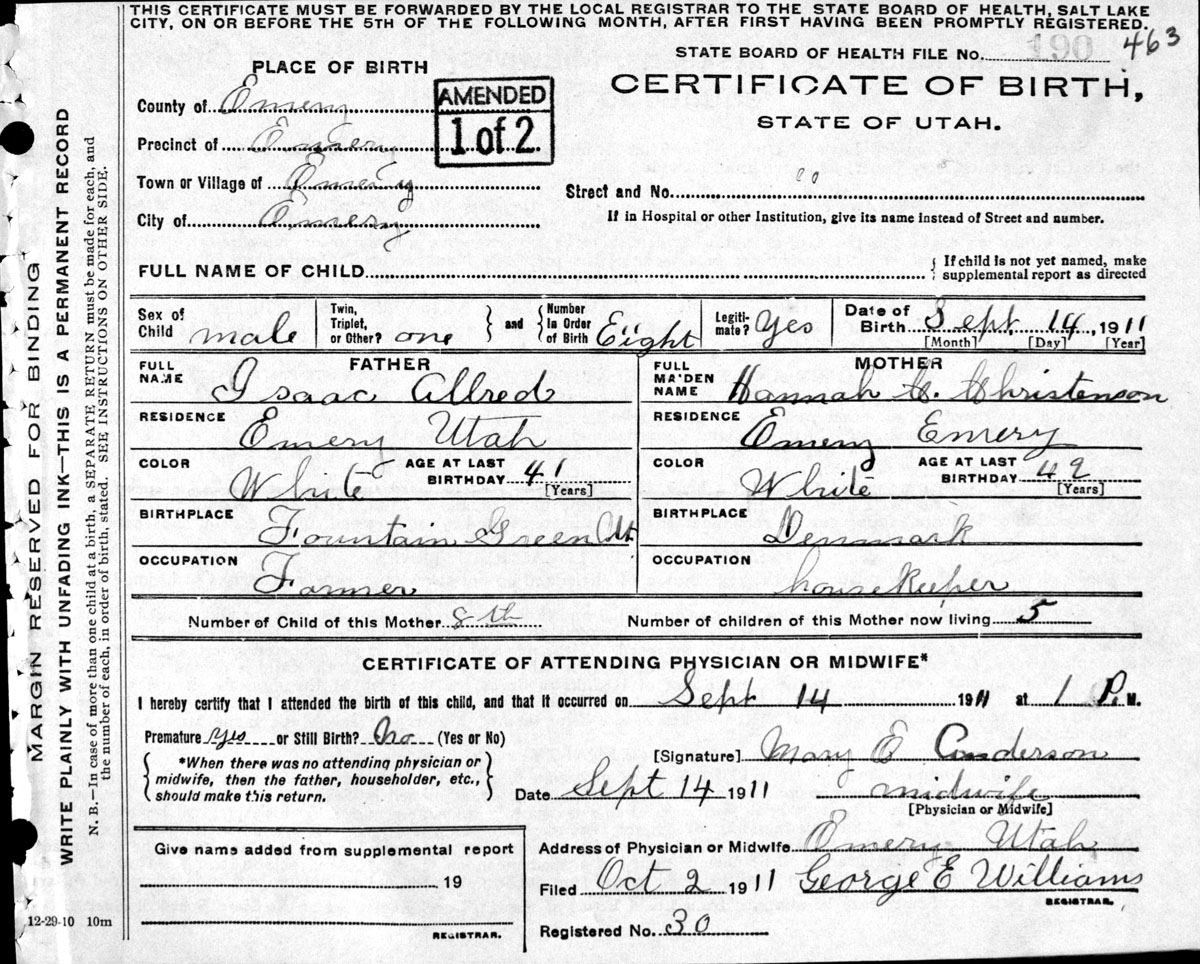 THIS CERTIFICATE MUST BE FORWARDED BY THE LOCAL REGISTRAR TO THE STATE BOARD OF HEALTH, SALT LAKE
CITY, ON OR BEFORE THE 5TH OF THE FOLLOWING MONTH, AFTER FIRST HAVING BEEN PROMPTLY REGISTERED.
STATE BOARD OF HEALTH FILE No. 190 463
PLACE OF BIRTH
CERTIFICATE OF BIRTH,
STATE OF UTAH.
AMENDED
1 of 2
County of Emery
Precinct of Emery
Town or Village of Emery
Street and No.
City of Emery
If in Hospital or other Institution, give its name instead of Street and number.
FULL NAME OF CHILD
If child is not yet named, make
supplemental report as directed
Sex of Child male
Twin, Triplet, or Other? one
and
Number In Order of Birth Eight
Legiti- mate? Yes
Date of Birth Sept 14, 1911
[Month] [Day] [Year]
FATHER
FULL NAME Isaac Allred
MOTHER
FULL MAIDEN NAME Hannah C. Christenson
RESIDENCE Emery Utah
RESIDENCE Emery Emery
COLOR White
AGE AT LAST BIRTHDAY 41
[Years]
COLOR White
AGE AT LAST BIRTHDAY 42
[Years]
BIRTHPLACE Fountain Green Ut
BIRTHPLACE Denmark
OCCUPATION Farmer
OCCUPATION housekeeper
Number of Child of this Mother 8th
Number of children of this Mother now living 5
CERTIFICATE OF ATTENDING PHYSICIAN OR MIDWIFE*
I hereby certify that I attended the birth of this child, and that it occurred on Sept 14 1911 at 1 P. M.
Premature yes or Still Birth? No (Yes or No)
*When there was no attending physician or
midwife, then the father, householder, etc.,
should make this return.
[Signature] Mary E Anderson
Date Sept 14 1911 midwife
[Physician or Midwife]
Give name added from supplemental report
19
REGISTRAR.
Address of Physician or Midwife Emery Utah
Filed Oct 2 1911 George E Williams
REGISTRAR.
Registered No. 30
12-29-10 10m
MARGIN RESERVED FOR BINDING
WRITE PLAINLY WITH UNFADING INK—THIS IS A PERMANENT RECORD
N. B.—In case of more than one child at a birth, a SEPARATE RETURN must be made for each, and
the number of each, in order of birth, stated. SEE INSTRUCTIONS ON OTHER SIDE.